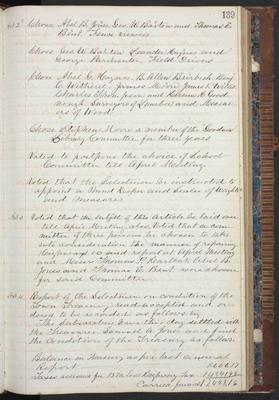 139
Art 2 Chose Abel B. Jones, Geo. W. Barton and Thomas E
Bent Fence viewers
Chose Geo. W. Barton Leander Haynes and
George Parmenter Field Drivers
Chose Abel G. Haynes, B. Allen
C. Willard, James Moore James
Charles Thompson and Rufus
Surveyors of Lumber and Measur-
ers of Wood
Chose Stephen Moore a member of the Goodnow
Library Committee for three years
Voted to postpone the choice of School
Committee till April Meeting
Voted that the Selectmen be instructed to
appoint a Pound Keeper and Sealer of Weights
and Measures
Art 3 Voted that the subject of this article be laid over
till April Meeting, also Voted that a com-
mittee of three persons be chosen to take
into consideration the manner of repairing
Highways and report at April Meeting
and Messrs Thomas P. Hurlbut Abel B.
Jones and Thomas E. Bent were chosen
for said Committee
Art 4 Report of the Selectmen on condition of the
Town Treasury read accepted and or-
dered to be recorded as follows viz
The Subscribers have this day settled with
the Treasurer Samuel A. Jones and find
the condition of the Treasury as follows
Balance in Treasury as per last annual
Report
Taxes assessed for 1874